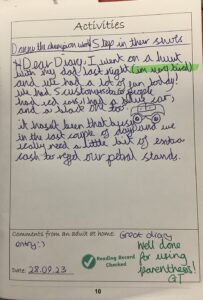 Activities
Danny the champion world Step in their shoes
Dear Diary, I went on a hunt
with my dad last night (im very tired)
and we had a lot of fun today!
We had 5 customers two people
had red cars, 1 had a blue car,
and a black one too.
it hasn't been that busy
in the last couple of days and we
really need a little bit of extra
cash to our petrol stands.
Comments from an adult at home Great diary
entry :)
Well done
for using
parenthesis!
GT
Reading Record
Checked
Date: 28.09.23
10